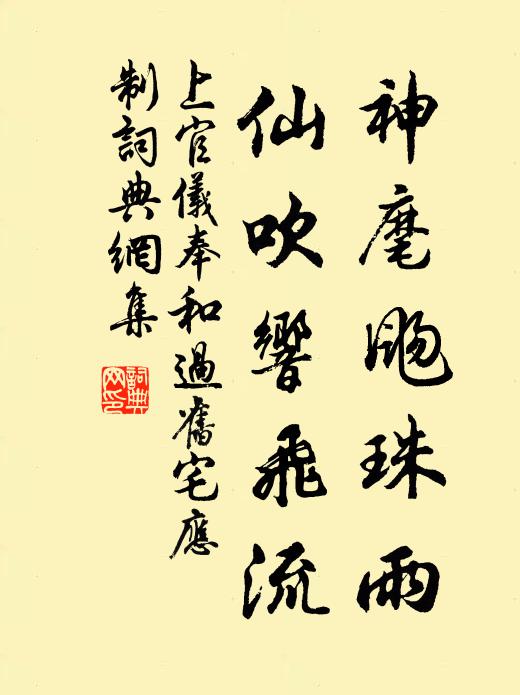 神麾颺珠雨
仙吹響飛流
上官儀奉和過舊宅應
制詞典網集
詞典
网印